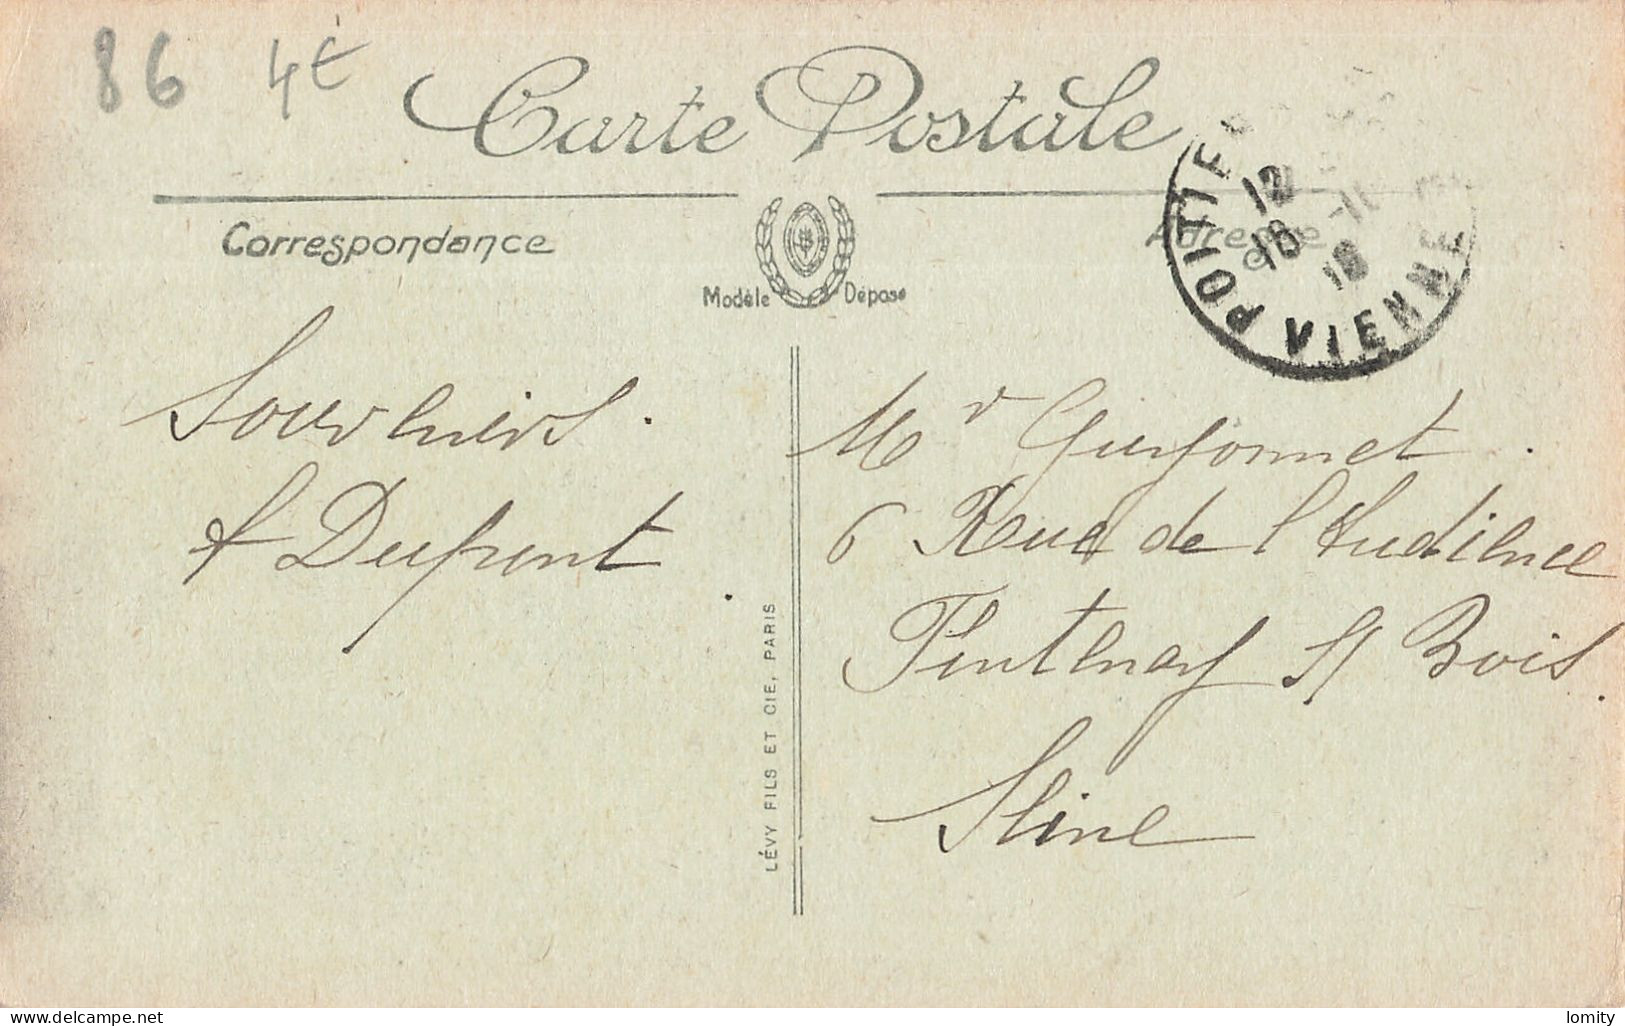 86 4€
Carte Postale
Correspondance
Adresse
Modèle Déposé
POITIERS
12
18 -11
18
VIENNE
Souvenirs.
f Dupont
LÉVY FILS ET CIE, PARIS
Mr Guyonnet.
6 Rue de l'Audience
Fontenay s/ Bois.
Seine
delcampe.net
lomity